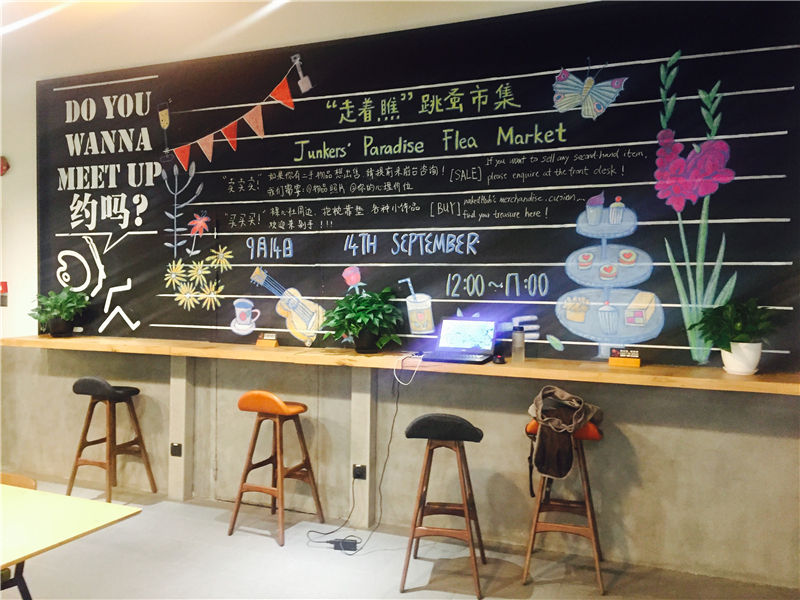 DO YOU
WANNA
MEET UP
约吗?
“走着瞧”跳蚤市集
Junkers' Paradise Flea Market
“卖卖卖!” 如果你有二手物品想出售 请提前来前台咨询! [SALE] If you want to sell any second-hand item, please enquire at the front desk!
我们需要:@物品照片 @你的心理价位
“买买买!” 裸心社周边、抱枕靠垫 各种小饰品 [BUY] nakedHub's merchandise, cusion... find your treasure here!
欢迎来剁手!!!
9月14日 14TH SEPTEMBER
12:00~17:00